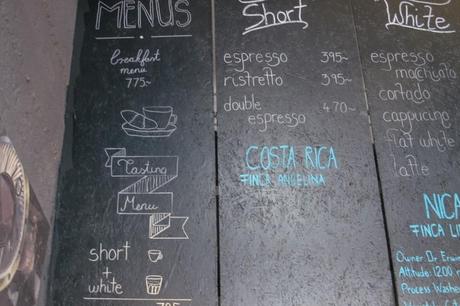 MENUS
breakfast
menu
775~
Tasting
Menu
short
+
white
Short
espresso 395~
ristretto 395~
double 470~
espresso
COSTA RICA
FINCA ANGELINA
White
espresso
macchiato
cortado
cappucino
flat white
latte
NICA
FINCA
Owner Dr Erwin
Altitude: 1200
Process Washe